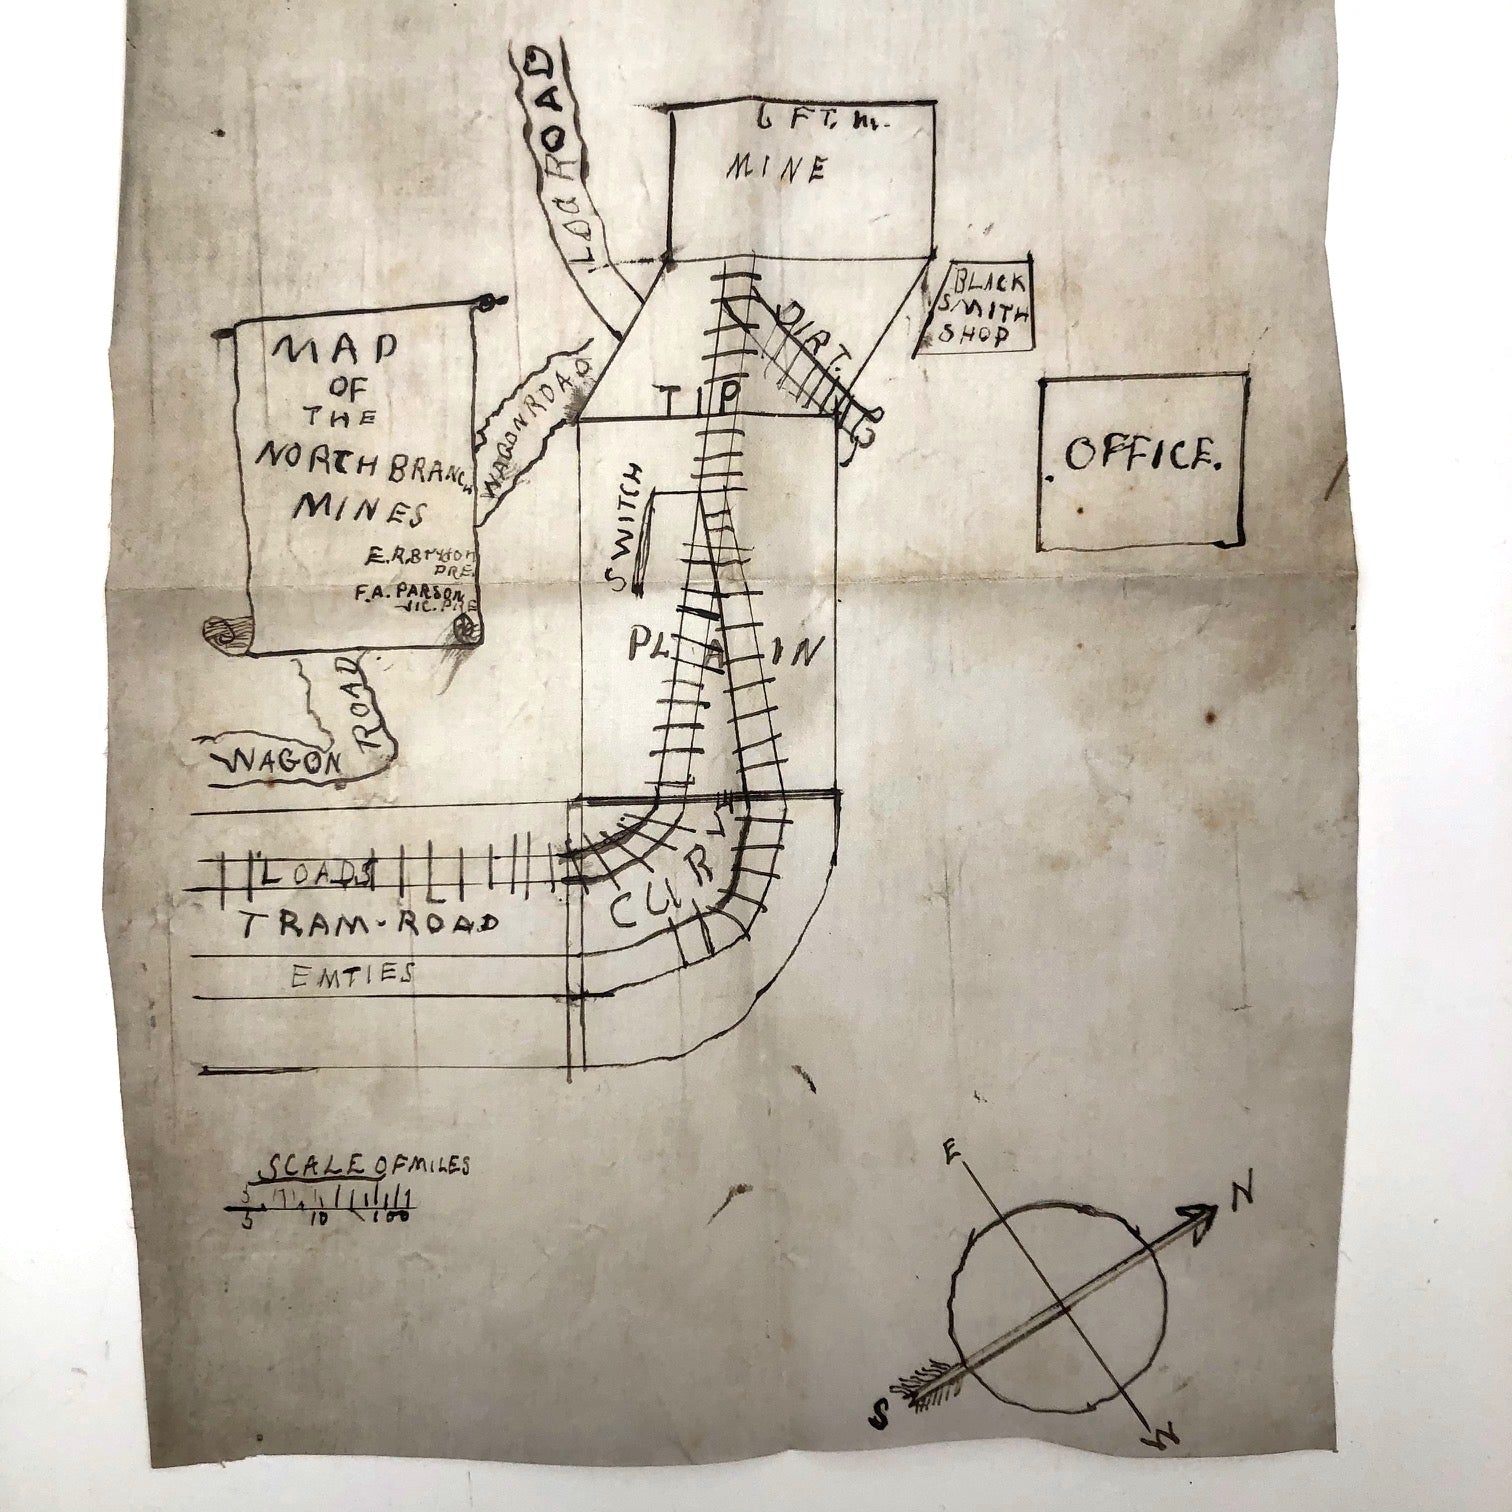 LOG ROAD
6 FT. M.
MINE
BLACK
SMITH
SHOP
DIRT.
TIP
OFFICE.
MAP
OF
THE
NORTH BRANCH
MINES
PRE.
F.A. PARSON
VIC. PRE
WAGON ROAD
SWITCH
PLAIN
WAGON ROAD
CURVE
LOADS
TRAM-ROAD
EMTIES
SCALE OF MILES
5
5 10 100
E
N
S
W